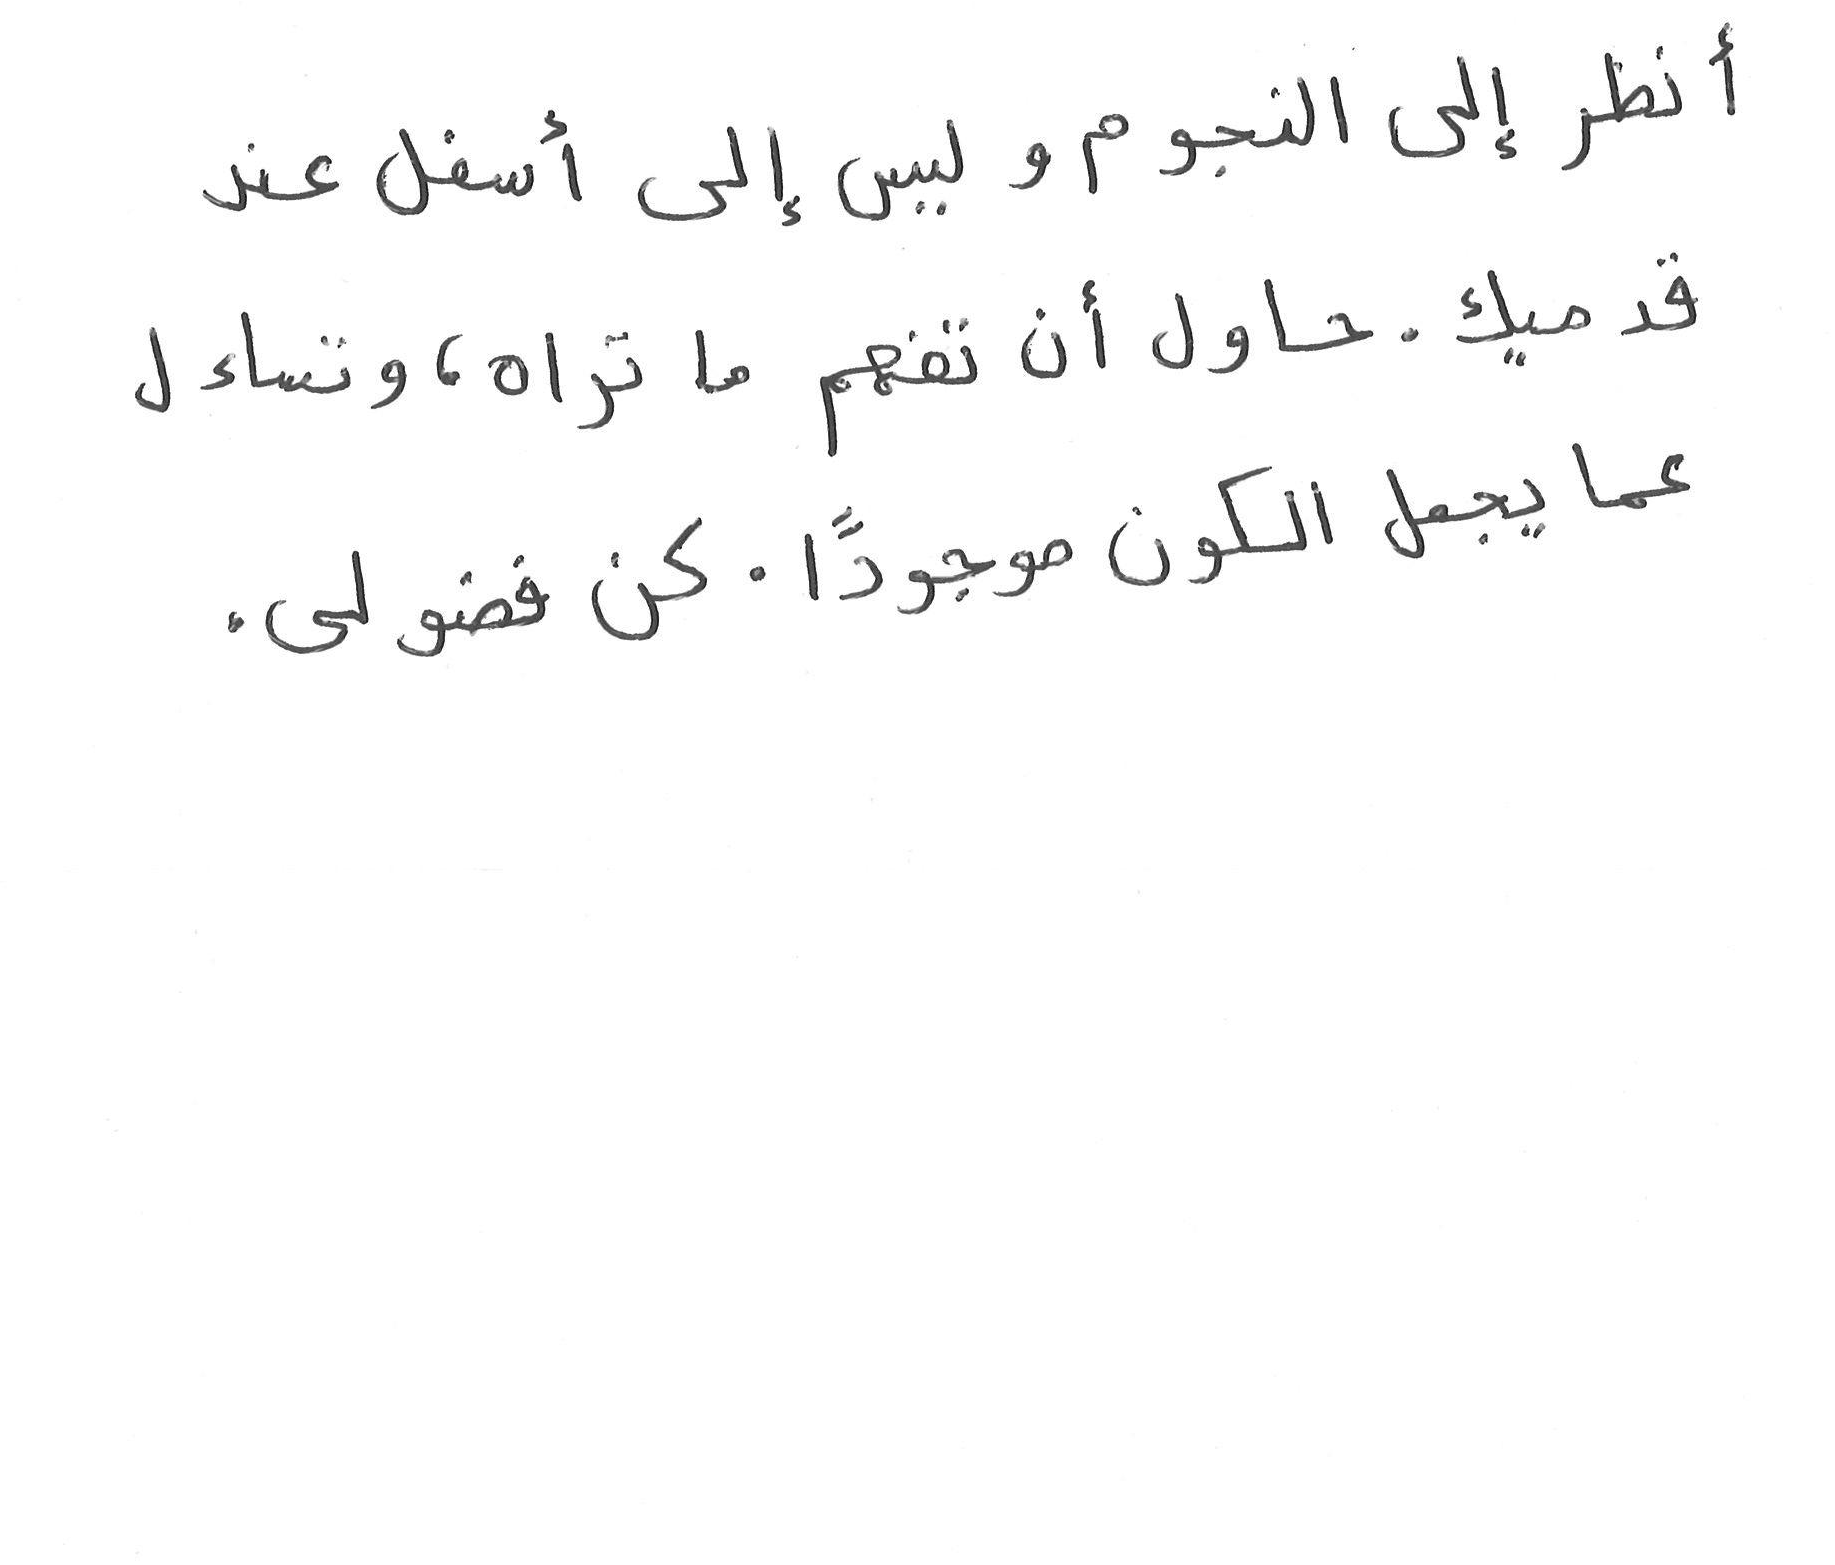 أنظر إلى النجوم و ليس إلى أسفل عند
قدميك . حاول أن تفهم ما تراه ، وتساءل
عما يجعل الكون موجودًا . كن فضولى .